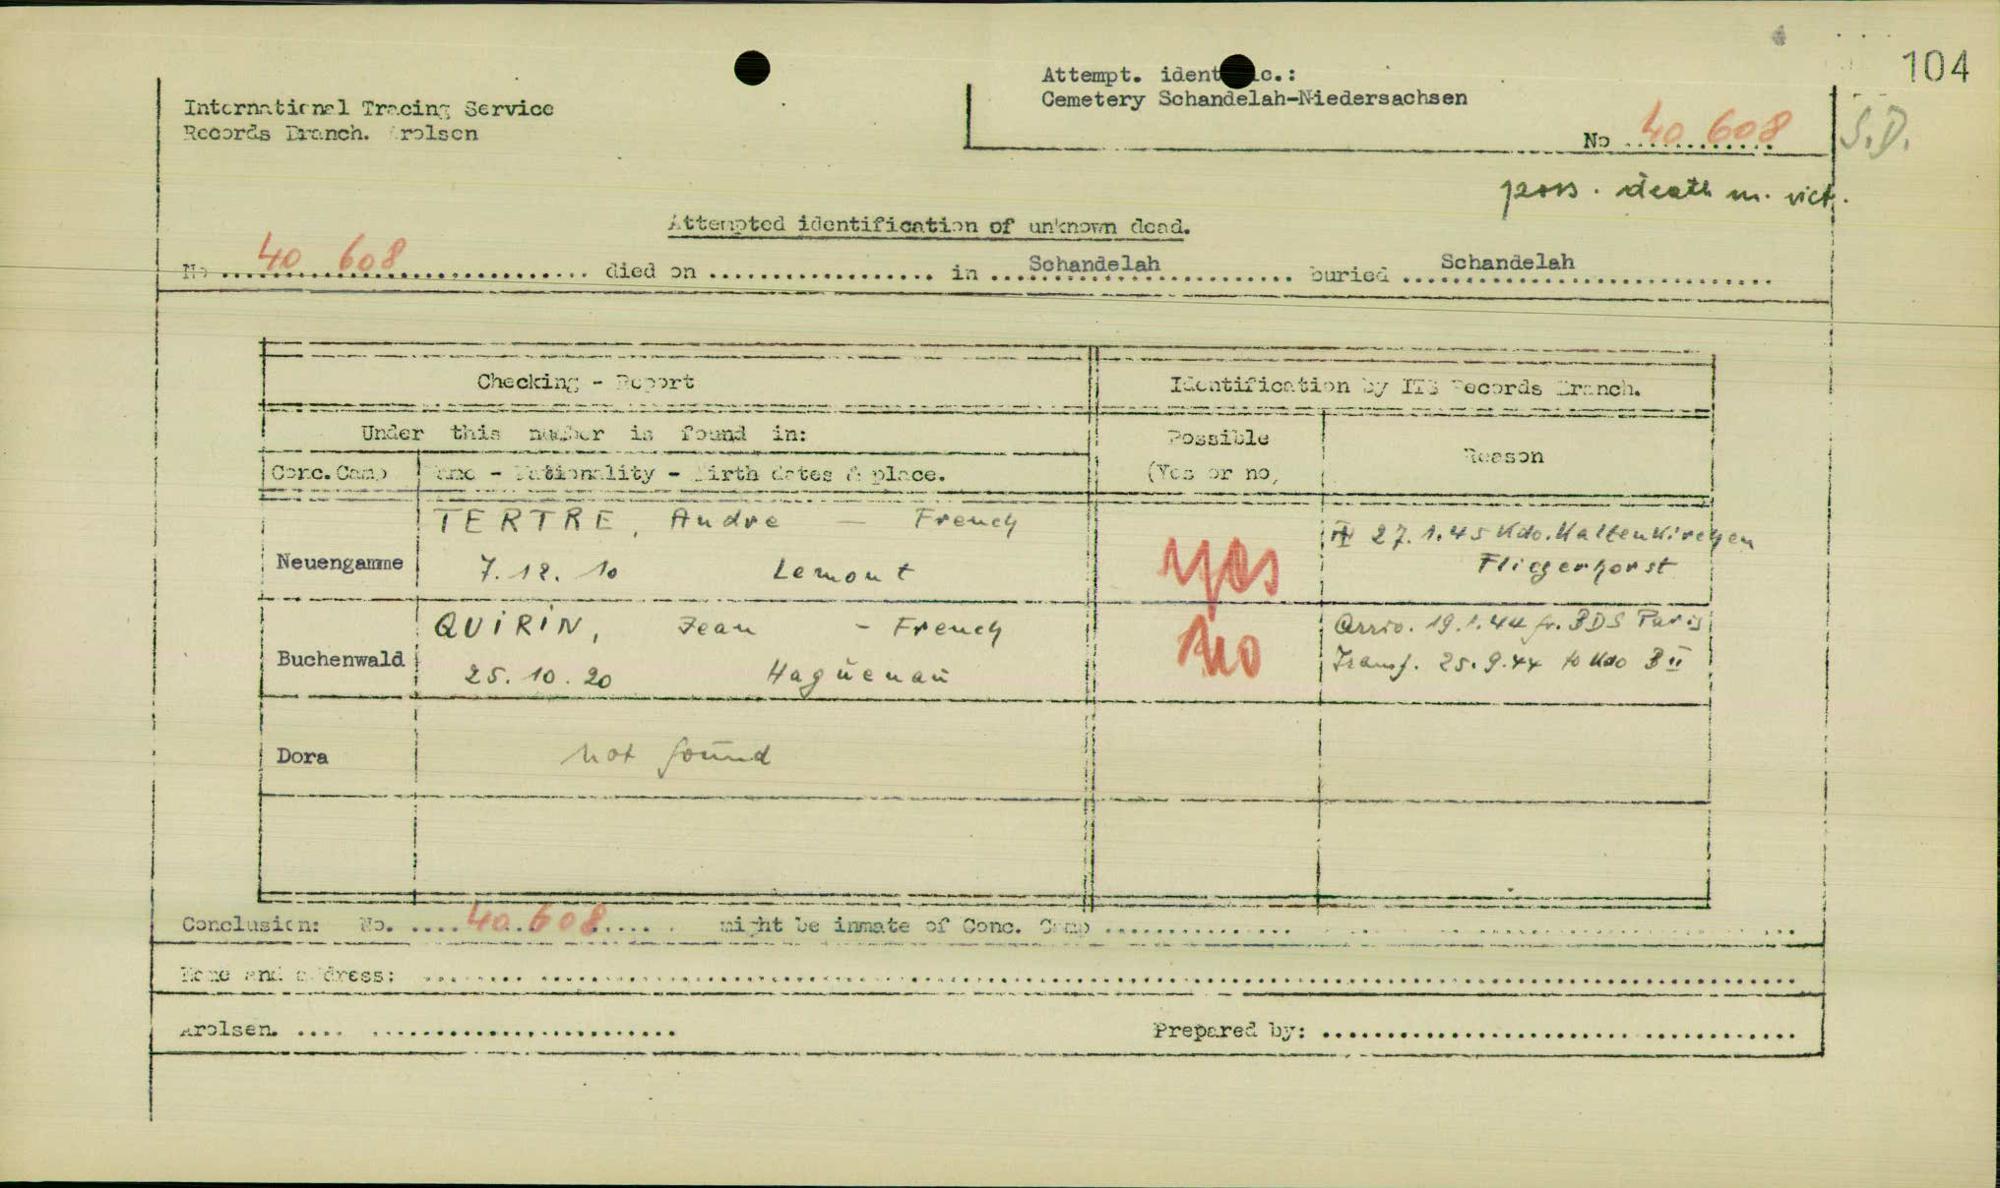 104
Attempt. identific.:
International Tracing Service
Cemetery Schandelah-Niedersachsen
Records Branch. Arolsen
No 40 608
S.D.
poss. death m. vict.
Attempted identification of unknown dead.
No 40 608 died on in Schandelah buried Schandelah
Checking - Report Identification by ITS Records Branch.
Under this number is found in: Possible Reason
Conc. Camp Name - Nationality - Birth dates & place. (Yes or no,
TERTRE, Andre — French 27.1.45 Kdo. Kaltenkirchen
Neuengamme 7.12.10 Lemont yes Fliegerhorst
QUIRIN, Jean - French Arriv. 19.1.44 fr. BDS Paris
Buchenwald 25.10.20 Haguenau no Transf. 25.9.44 to Kdo B II
Dora not found
Conclusion: No. 40.608 might be inmate of Conc. Camp
Name and address:
Arolsen. Prepared by: